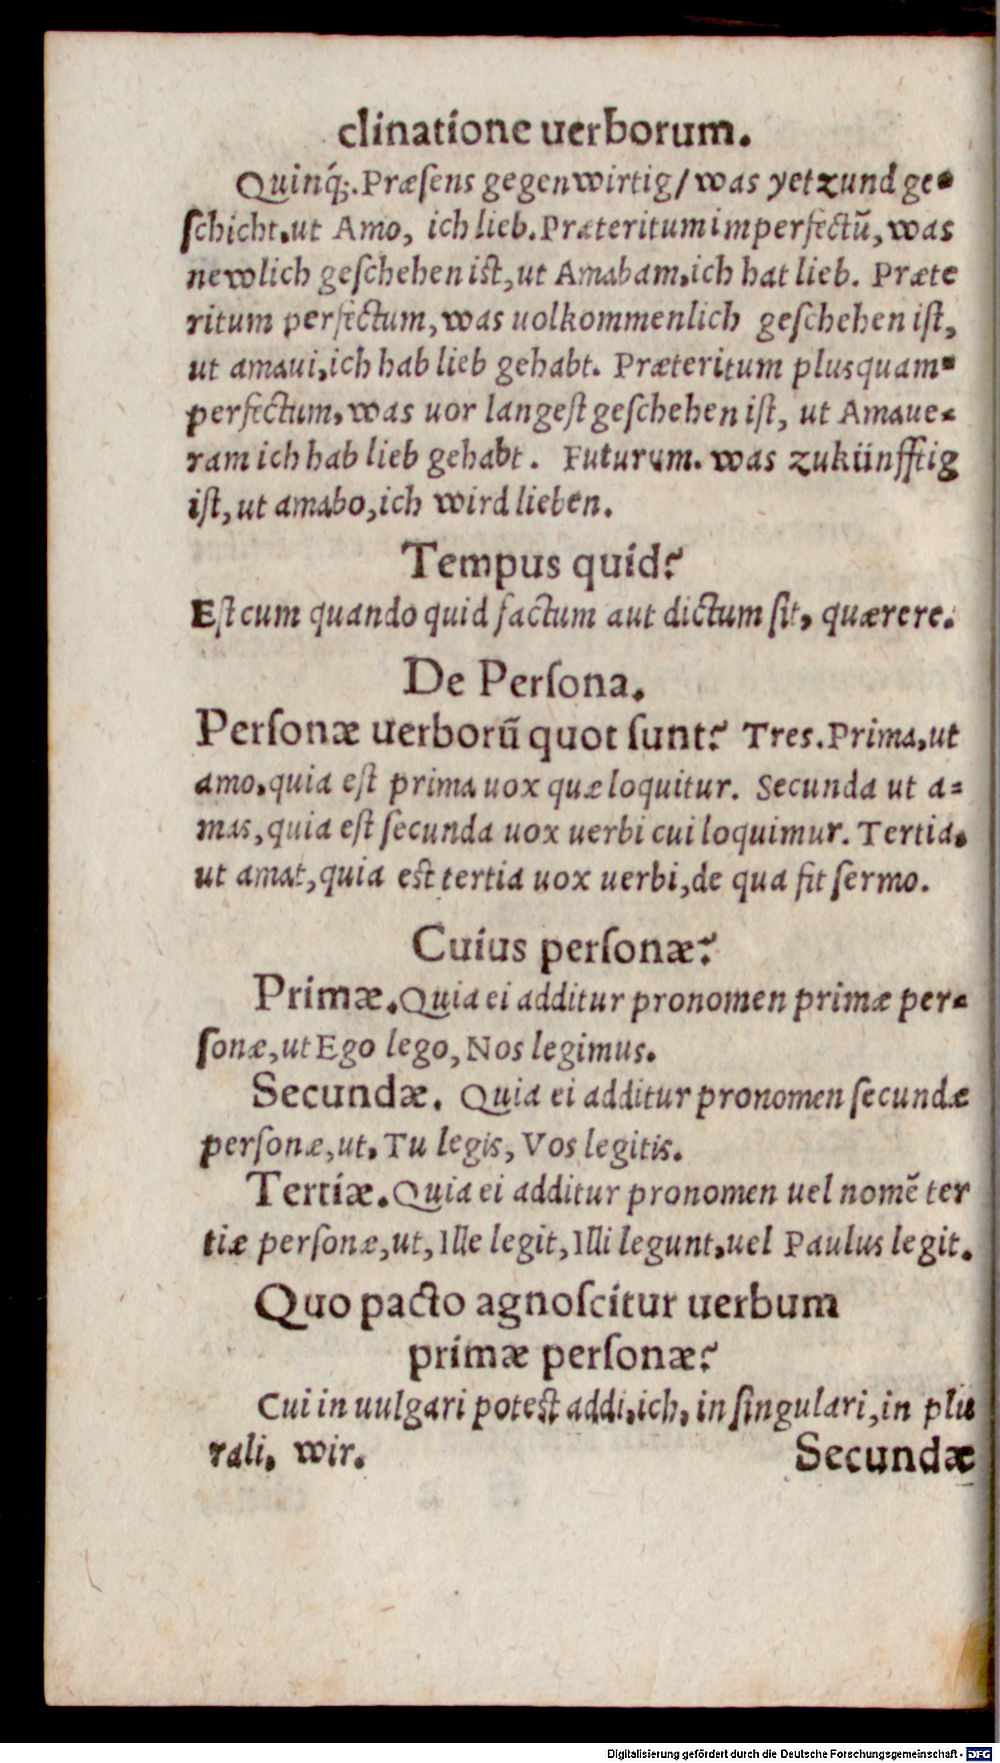 clinatione uerborum.
Quinq́;. Præſens gegenwirtig/ was yetzund ge-
ſchicht. ut Amo, ich lieb. Præteritum imperfectũ, was
newlich geſchehen iſt, ut Amabam, ich hat lieb. Præte
ritum perfectum, was uolkommenlich geſchehen iſt,
ut amaui, ich hab lieb gehabt. Præteritum plusquam-
perfectum, was uor langeſt geſchehen iſt, ut Amaue-
ram ich hab lieb gehabt. Futurum. was zukünfftig
iſt, ut amabo, ich wird lieben.
Tempus quid?
Eſt cum quando quid factum aut dictum ſit, quærere.
De Perſona.
Perſonæ uerborũ quot ſunt? Tres. Prima, ut
amo, quia eſt prima uox quæ loquitur. Secunda ut a=
mas, quia eſt ſecunda uox uerbi cui loquimur. Tertia,
ut amat, quia eſt tertia uox uerbi, de qua fit ſermo.
Cuius perſonæ?
Primæ. Quia ei additur pronomen primæ per-
ſonæ, ut Ego lego, Nos legimus.
Secundæ. Quia ei additur pronomen ſecundæ
perſonæ, ut, Tu legis, Vos legitis.
Tertiæ. Quia ei additur pronomen uel nomẽ ter
tiæ perſonæ, ut, Ille legit, Illi legunt, uel Paulus legit.
Quo pacto agnoſcitur uerbum
primæ perſonæ?
Cui in uulgari poteſt addi, ich, in ſingulari, in plu
rali, wir. Secundæ
Digitalisierung gefördert durch die Deutsche Forschungsgemeinschaft - DFG